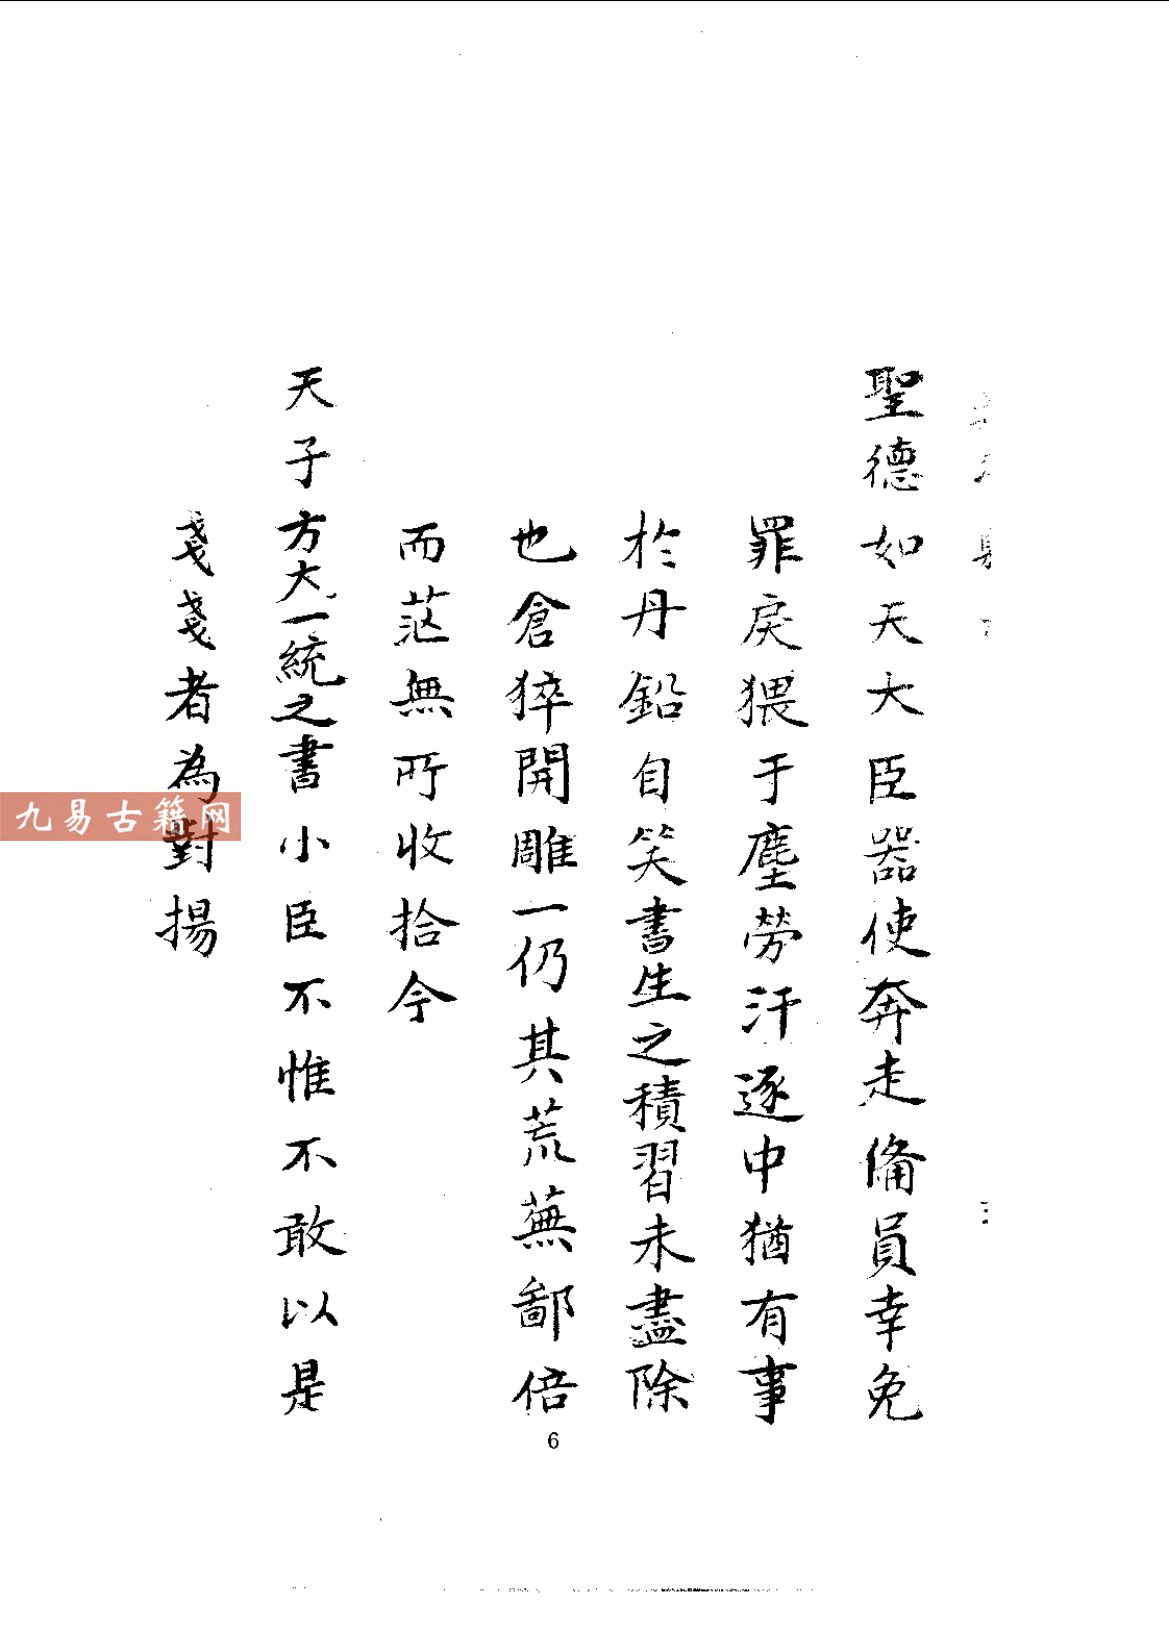 聖德如天大臣器使奔走備員幸免
罪戾猥于塵勞汗逐中猶有事
於丹鉛自笑書生之積習未盡除
也倉猝開雕一仍其荒蕪鄙倍
而茫無所收拾今
天子方大一統之書小臣不惟不敢以是
戔戔者為對揚
九易古籍网
6